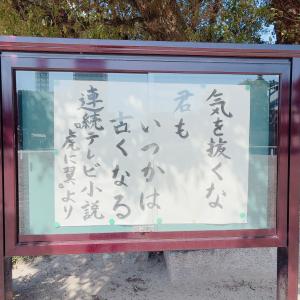 気を抜くな
君も
いつかは
古くなる
連続テレビ小説
“虎に翼”より